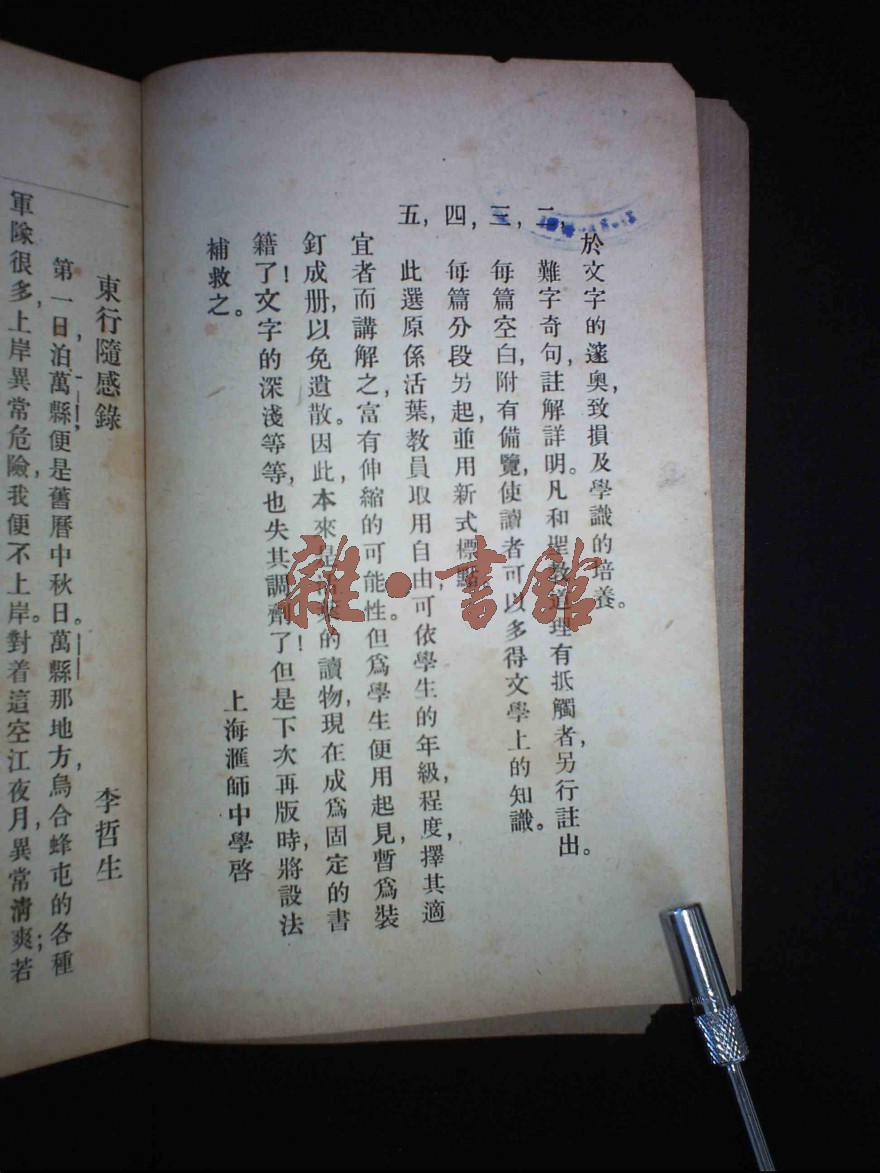 於文字的邃奧，致損及學識的培養。
二，難字奇句，註解詳明。凡和聖教道理有抵觸者，另行註出。
三，每篇空白，附有備覽，使讀者可以多得文學上的知識。
四，每篇分段另起，並用新式標點。
五，此選原係活葉，教員取用自由，可依學生的年級，程度，擇其適
宜者而講解之，富有伸縮的可能性。但爲學生便用起見，暫爲裝
釘成册，以免遺散。因此，本來是活葉的讀物，現在成爲固定的書
籍了！文字的深淺等等，也失其調劑了！但是下次再版時，將設法
補救之。
上海滙師中學啓
東行隨感錄
李哲生
第一日，泊萬縣，便是舊曆中秋日。萬縣那地方，烏合蜂屯的各種
軍隊很多，上岸異常危險，我便不上岸。對着這空江夜月，異常清爽；若
雜·書館